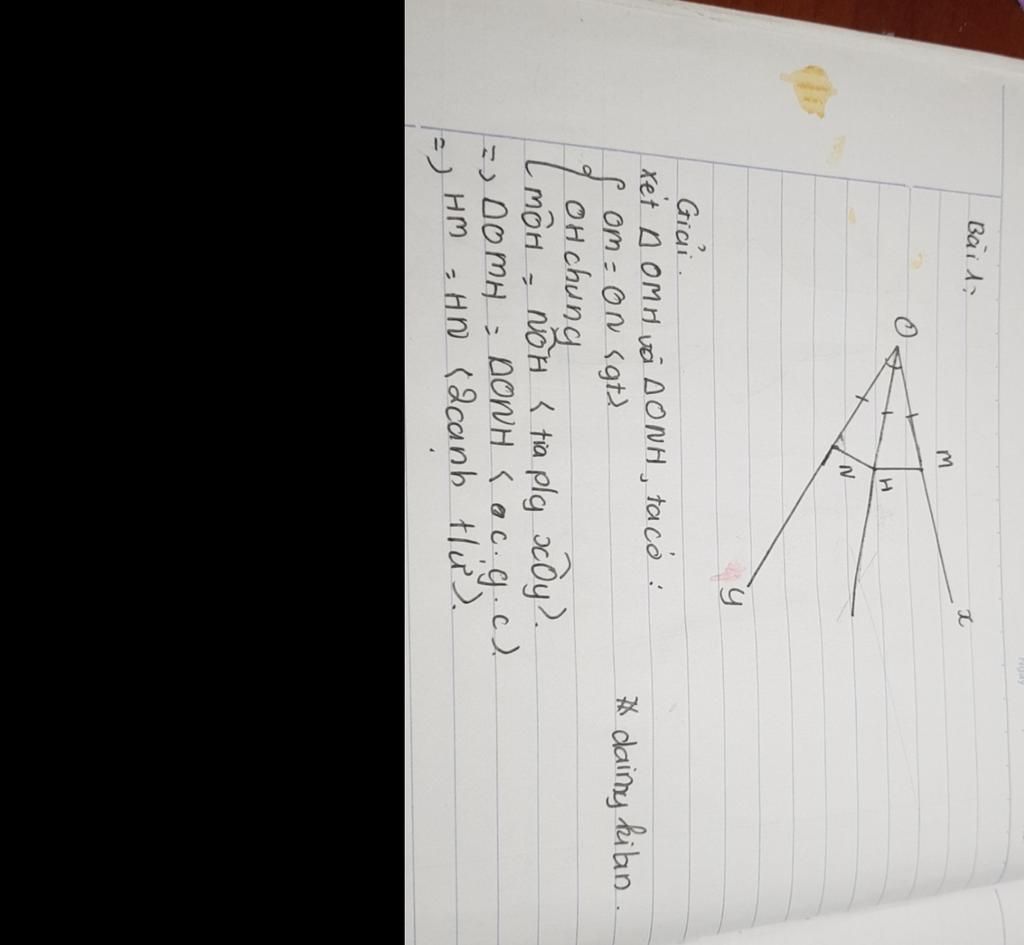 Bài 1:
O
M
x
H
N
y
Giải.
Xét Δ OMH và Δ ONH, ta có:
OM = ON <gt>
OH chung
MÔH = NÔH < tia p/g xÔy>.
=> ΔOMH = ΔONH < c.g.c>.
=> HM = HN <2 cạnh t/ư>.